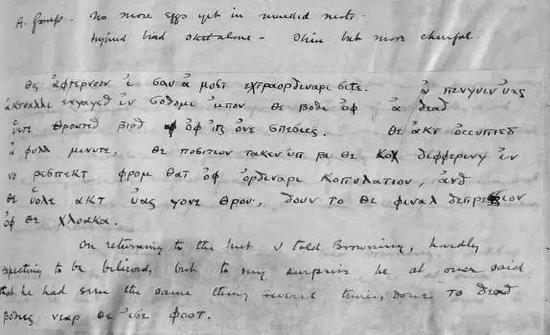 A. Group. No more eggs yet in marked nests.
Injured bird still alone – Thin but more cheerful.
θις ἀφτερνοον ἰ σαυ ἀ μοστ εχτραορδιναρι σιτε. ἀ πενγυιν ὑας
ἀκτυαλλι ενγαγεδ ἰν σοδομι ὐπον θε βοδι ὀφ ἀ δεαδ
ὑιτε θροατεδ βιρδ ὀφ ἰτς ὀνε σπεσιες. θε ἀκτ ὀccυπιεδ
ἀ φυλλ μινυτε, θε ποσιτιον τακεν ὐπ βι θε κοχ διφφερινγ ἰν
νο ρεσπεκτ φρομ θατ ὀφ ὀρδιναρι κοπυλατιον, ἀνδ
θε ὑολε ακτ ὑας γονε θρου, δουν το θε φιναλ δεπρεσσιον
ὀφ θε χλοακα.
On returning to the hut I told Browning, hardly
expecting to be believed, but to my surprise he at once said
that he had seen the same thing several times, done το δεαδ
βοδιες νεαρ θε ἰσε φοοτ.